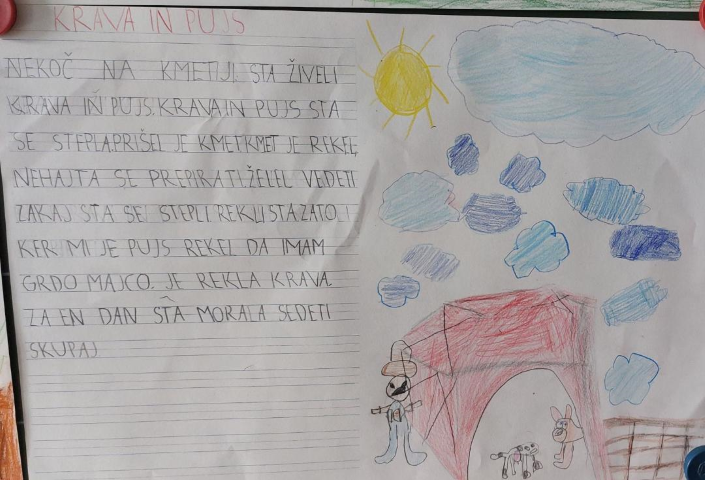 KRAVA IN PUJS
NEKOČ NA KMETIJI STA ŽIVELI
KRAVA IN PUJS. KRAVA IN PUJS STA
SE STEPLA. PRIŠEL JE KMET. KMET JE REKEL,
NEHAJTA SE PREPIRATI. ŽELEL VEDETI
ZAKAJ STA SE STEPLI. REKLI STA ZATO
KER MI JE PUJS REKEL DA IMAM
GRDO MAJCO. JE REKLA KRAVA.
ZA EN DAN STA MORALA SEDETI
SKUPAJ